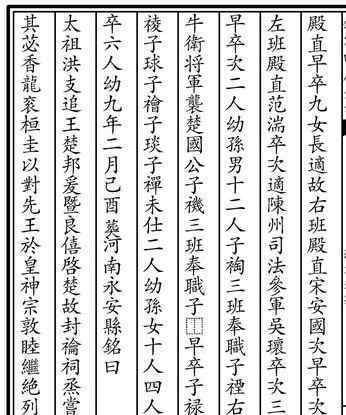 殿直早卒九女長適故右班殿直宋安國次早卒次
左班殿直范湍卒次適陳州司法參軍吳瓌卒次三
早卒次二人幼孫男十二人子裪三班奉職子禋右
牛衛将軍襲楚國公子禨三班奉職子早卒子祿
祾子球子禬子琰子禪未仕二人幼孫女十人四人
卒六人幼九年二月己酉葬河南永安縣銘曰
太祖洪支追王楚邦爰暨良僖啓楚故封禴祠烝嘗
其苾香龍衮桓圭以對先王於皇神宗敦睦繼絶列